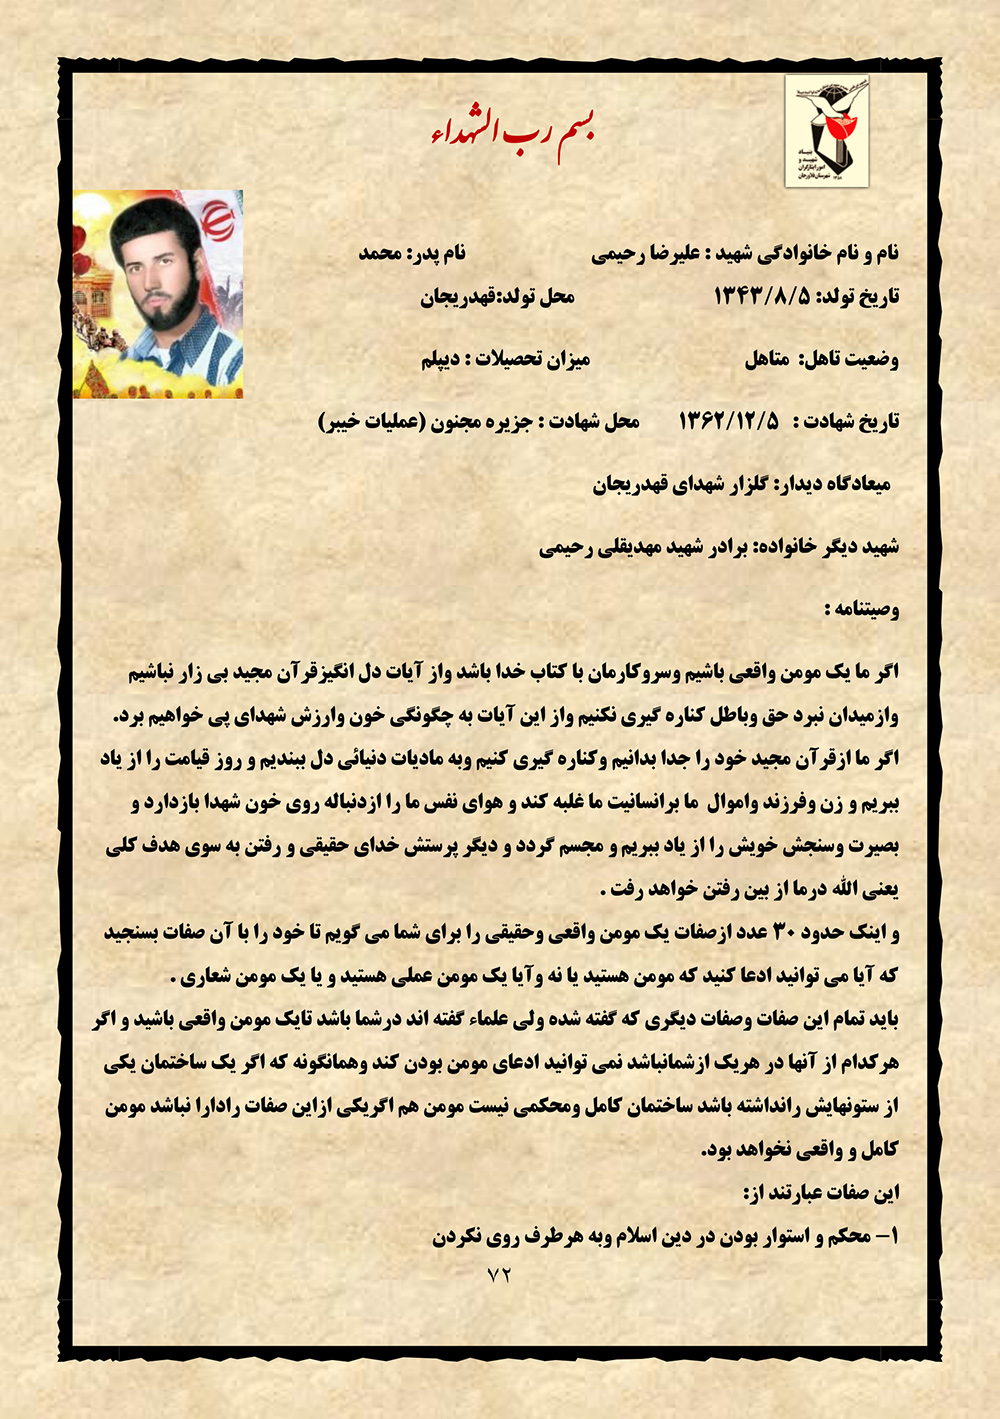 بسم رب الشهداء
بنیاد
شهید و
امور ایثارگران
شهرستان فلاورجان
نام و نام خانوادگی شهید : علیرضا رحیمی نام پدر: محمد
تاریخ تولد: ۱۳۴۳/۸/۵ محل تولد:قهدریجان
وضعیت تاهل: متاهل میزان تحصیلات : دیپلم
تاریخ شهادت : ۱۳۶۲/۱۲/۵ محل شهادت : جزیره مجنون (عملیات خیبر)
میعادگاه دیدار: گلزار شهدای قهدریجان
شهید دیگر خانواده: برادر شهید مهدیقلی رحیمی
وصیتنامه :
اگر ما یک مومن واقعی باشیم وسروکارمان با کتاب خدا باشد واز آیات دل انگیزقرآن مجید بی زار نباشیم
وازمیدان نبرد حق وباطل کناره گیری نکنیم واز این آیات به چگونگی خون وارزش شهدای پی خواهیم برد.
اگر ما ازقرآن مجید خود را جدا بدانیم وکناره گیری کنیم وبه مادیات دنیائی دل ببندیم و روز قیامت را از یاد
ببریم و زن وفرزند واموال ما برانسانیت ما غلبه کند و هوای نفس ما را ازدنباله روی خون شهدا بازدارد و
بصیرت وسنجش خویش را از یاد ببریم و مجسم گردد و دیگر پرستش خدای حقیقی و رفتن به سوی هدف کلی
یعنی الله درما از بین رفتن خواهد رفت .
و اینک حدود ۳۰ عدد ازصفات یک مومن واقعی وحقیقی را برای شما می گویم تا خود را با آن صفات بسنجید
که آیا می توانید ادعا کنید که مومن هستید یا نه وآیا یک مومن عملی هستید و یا یک مومن شعاری .
باید تمام این صفات وصفات دیگری که گفته شده ولی علماء گفته اند درشما باشد تایک مومن واقعی باشید و اگر
هرکدام از آنها در هریک ازشمانباشد نمی توانید ادعای مومن بودن کند وهمانگونه که اگر یک ساختمان یکی
از ستونهایش رانداشته باشد ساختمان کامل ومحکمی نیست مومن هم اگریکی ازاین صفات رادارا نباشد مومن
کامل و واقعی نخواهد بود.
این صفات عبارتند از:
۱- محکم و استوار بودن در دین اسلام وبه هرطرف روی نکردن
۷۲